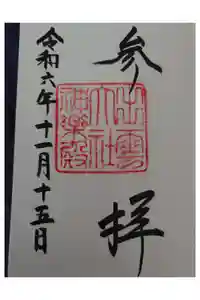 参拝
出雲大社神楽殿
令和六年十一月十五日